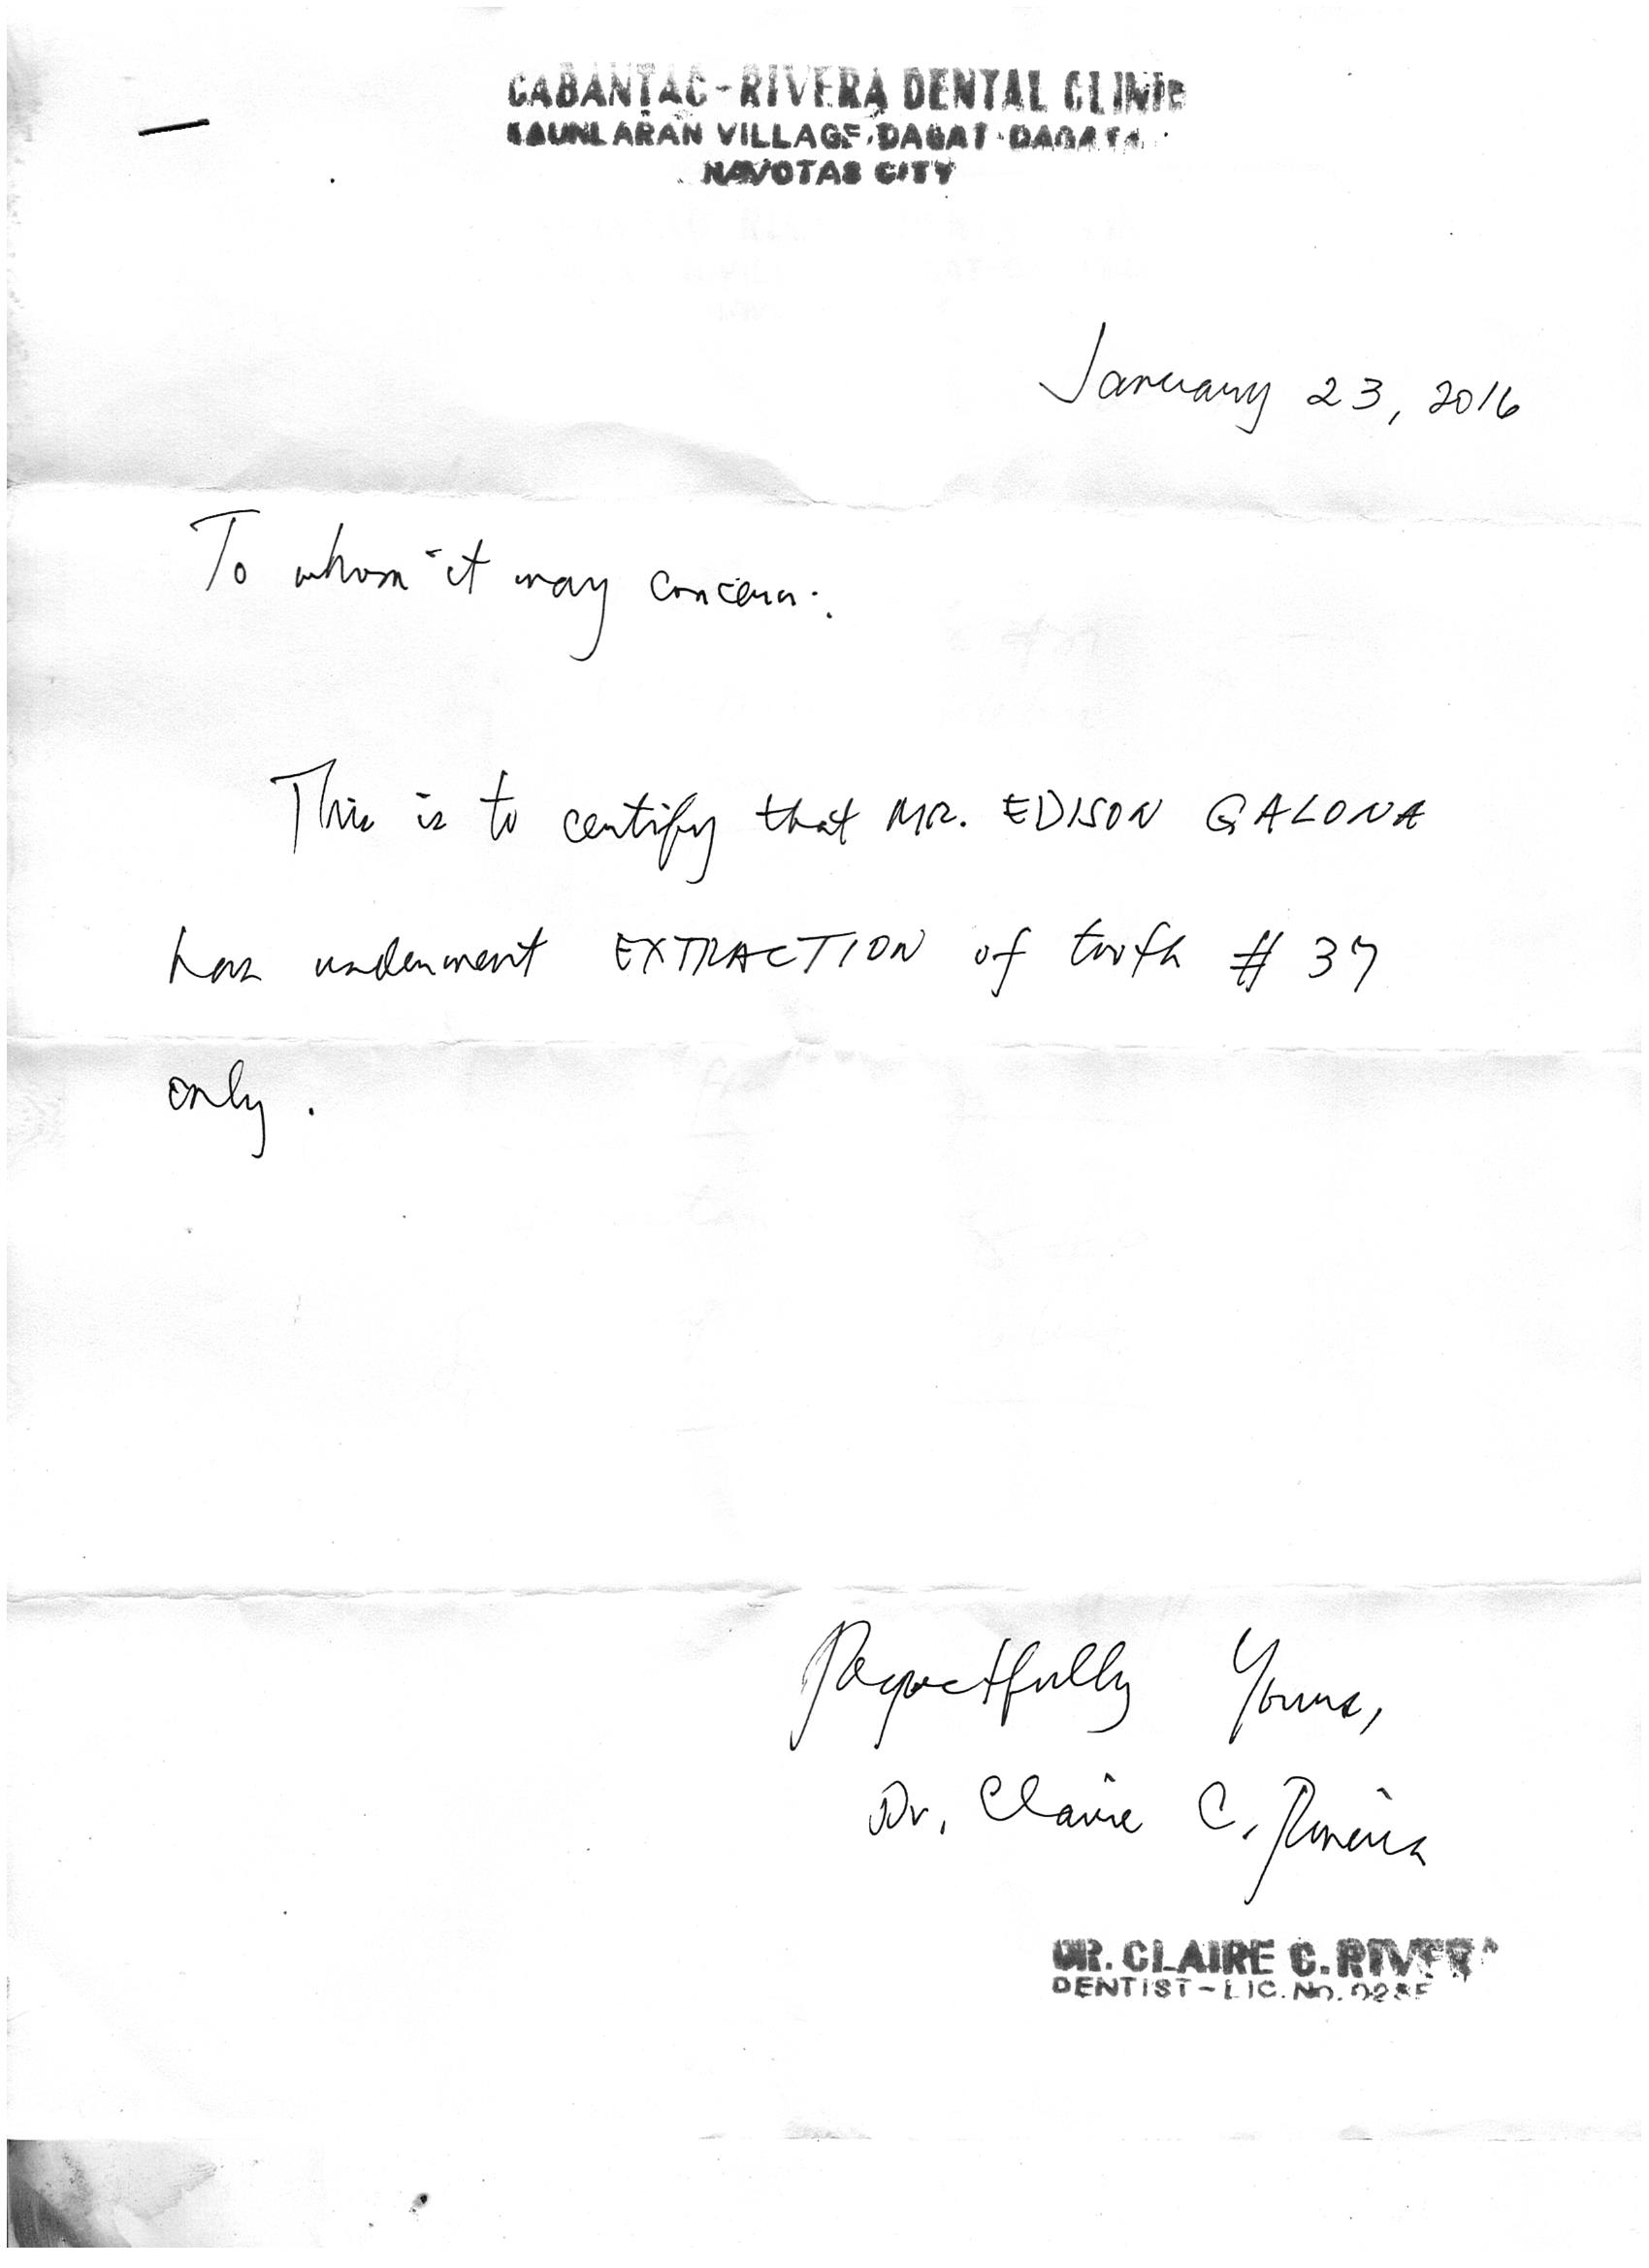 CABANTAC-RIVERA DENTAL CLINIC
KAUNLARAN VILLAGE, DAGAT-DAGATAN
NAVOTAS CITY
January 23, 2016
To whom it may concern:
This is to certify that MR. EDISON GALONA
has underwent EXTRACTION of tooth # 37
only.
Respectfully Yours,
Dr. Claire C. Rivera
DR. CLAIRE C. RIVERA
DENTIST - LIC. No.